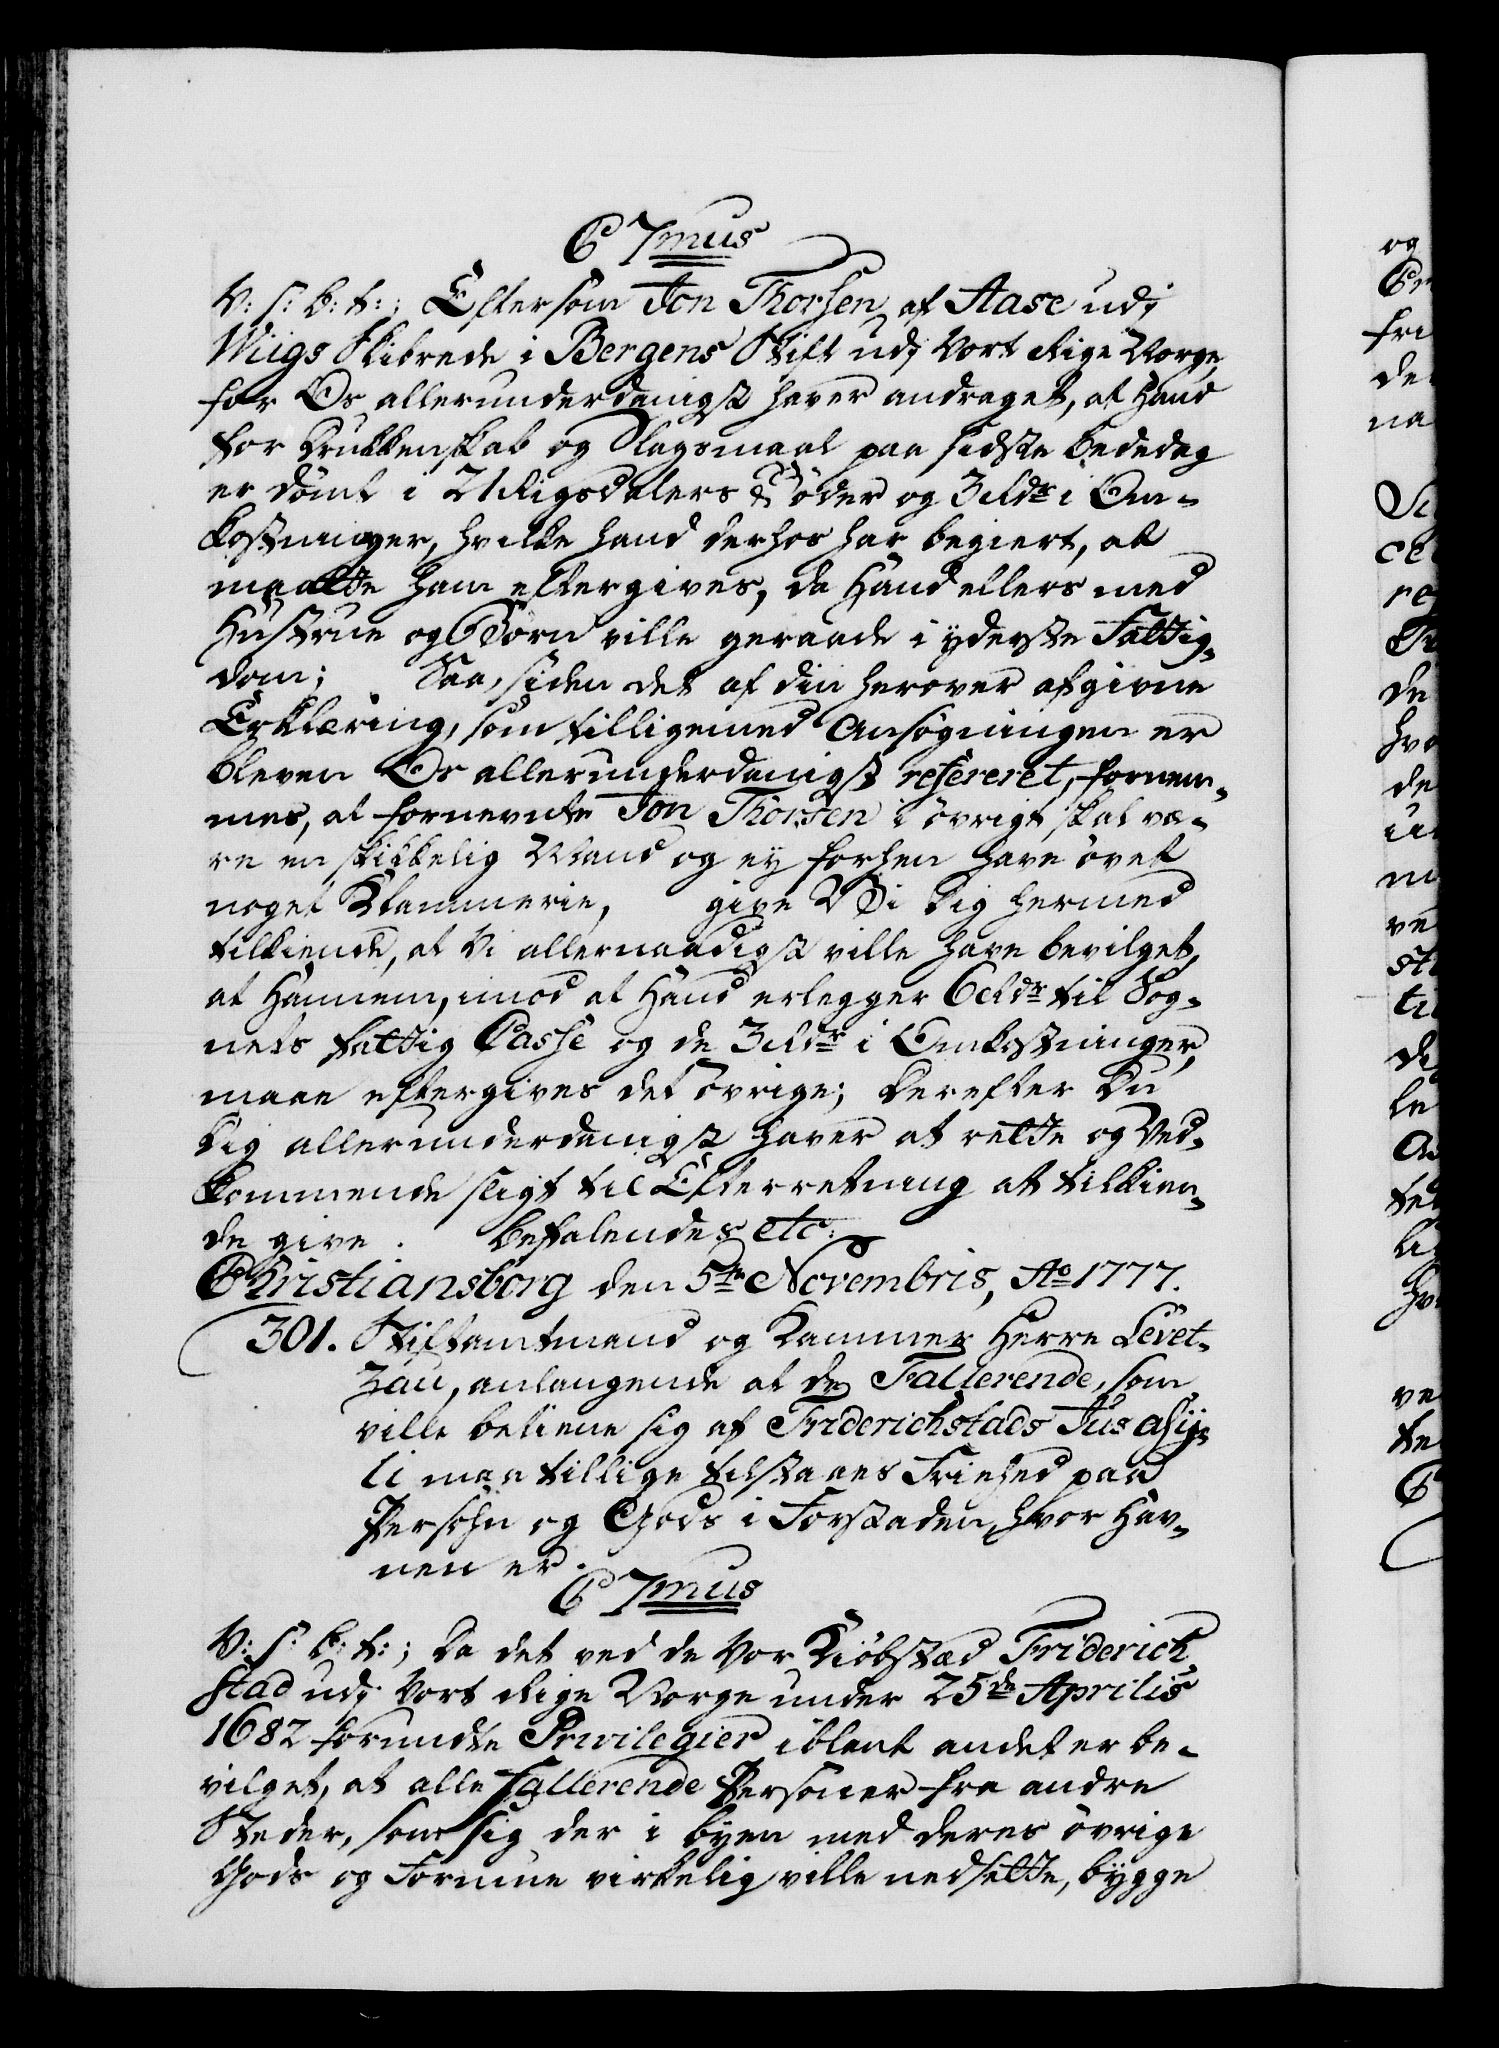 C 7mus
V: S: b: t:; Eftersom Jon Thorsen af Aase udj
Wiigs Skibrede i Bergens Stift udj Vort Rige Norge
for Os allerunderdanigst haver andraget, at hand
for Drukkenskab og Slagsmaal paa sidste Bededag
er dömt i 21 Rigsdalers Böder og 3 Rdr i Om-
kostninger, hvilke hand derhos har begiert, at
maatte ham eftergives, da Hand ellers med
Hustrue og Börn ville geraade i yderste Fattig-
dom; Saa, siden det af din herover afgivne
Erklæring, som tilligemed Ansøgningen er
bleven Os allerunderdanigst refereret, fornem-
mes, at fornevnte Jon Thorsen i övrigt skal væ-
re en skikkelig Mand og ey forhen have övet
noget Klammerie, give Vi Dig hermed
tilkiende, at Vi allernaadigst ville have bevilget,
at Hannem, imod at Hand erlegger 6 Rdr til Sog-
nets Fattig Casse og de 3 Rdr i Omkostninger,
maae eftergives det övrige; Derefter Du
Dig allerunderdanigst haver at rette og Ved-
kommende sligt til Efterretning at tilkien-
de give. Befalendes etc:
Christiansborg den 5te Novembris, Ao 1777.
301. Stiftamtmand og Kammer Herre Levet-
zau, anlangende at de Fallerende, som
ville betiene sig af Friderichstads Jus asy-
li maa tillige tilstaaes Friehed paa
Persohn og Gods i Forstaden, hvor Hav-
nen er.
C 7mus
V: S: b: t:; Da det ved de Vor Kiöbstæd Friderich
stad udj Vort Rige Norge under 25de Aprilis
1682 forundte Privilegier iblant andet er be-
vilget, at alle Fallerende Personer fra andre
Steder, som sig der i byen med deres övrige
Gods og Formue virkelig ville nedsette, bygge